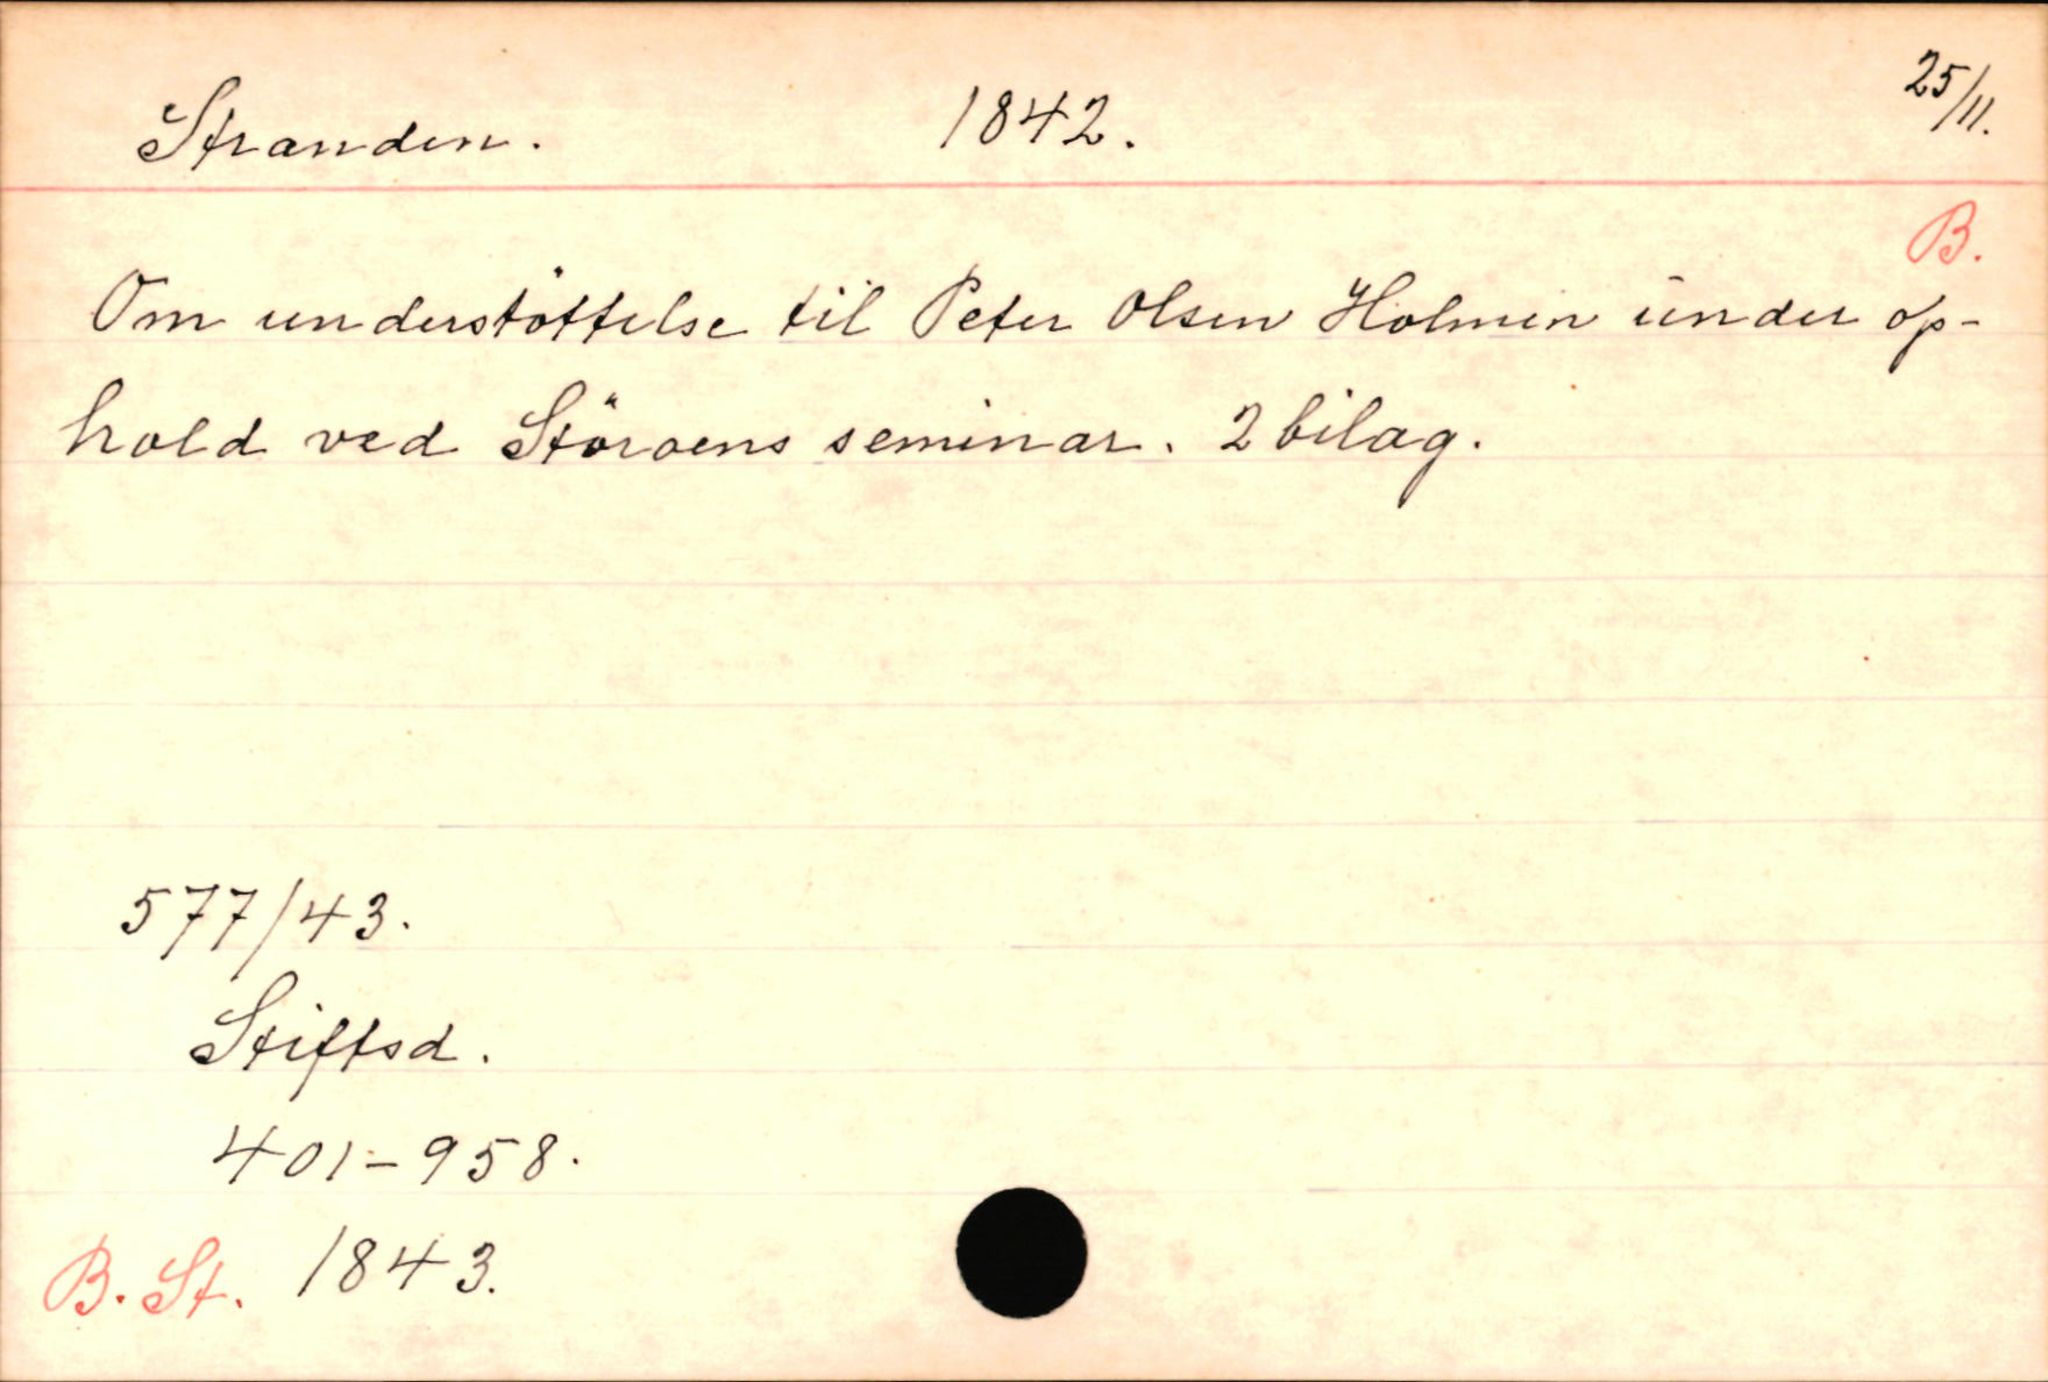 Stranden. 1842. 25/11.
B.
Om understöttelse til Peter Olsen Holmen under op-
hold ved Störoens seminar. 2 bilag.
577/43.
Stiftsd.
401-958.
B. St. 1843.